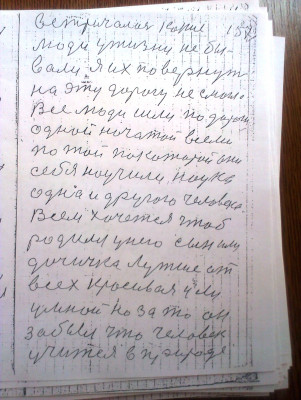 встричалоя какие 158
люди у жизни не бы-
вали я их повернут
на эту дорогу не смог.
Все люди шли по дороги
одной начатой всеми
по той по которой они
себя научили, наука
одна и другого человека
Всем хочется чтоб
родили у него сын или
дочичка лутше от
всех красивая или
умной но за то он
забыли что человек
учится в природе